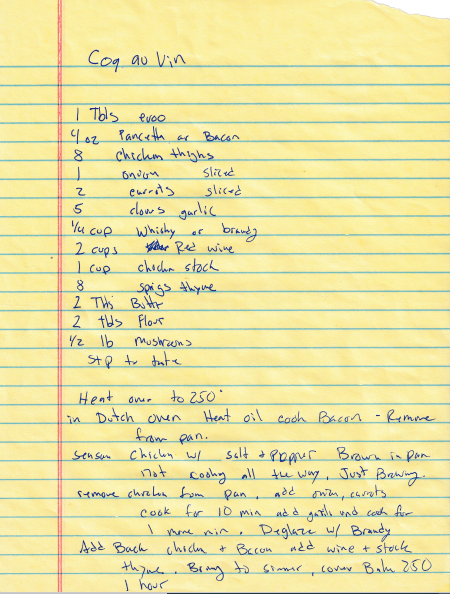 Coq au Vin
1 Tbls evoo
4 oz Pancetta or Bacon
8 chicken thighs
1 onion sliced
2 carrots sliced
5 cloves garlic
1/4 cup Whisky or brandy
2 cups Red wine
1 cup chicken stock
8 spigs thyme
2 Tbls Butter
2 tbls flour
1/2 lb mushrooms
S+p to taste
Heat oven to 250°
in Dutch oven Heat oil cook Bacon - Remove
from pan.
season chicken w/ salt + Pepper Brown in pan
not cooking all the way, Just Browning.
remove chicken from pan. add onion, carrots
cook for 10 min add garlic and cook for
1 more min. Deglaze w/ Brandy
Add Back chicken + Bacon add wine + stock
thyme. Bring to simmer, cover Bake 250
1 hour